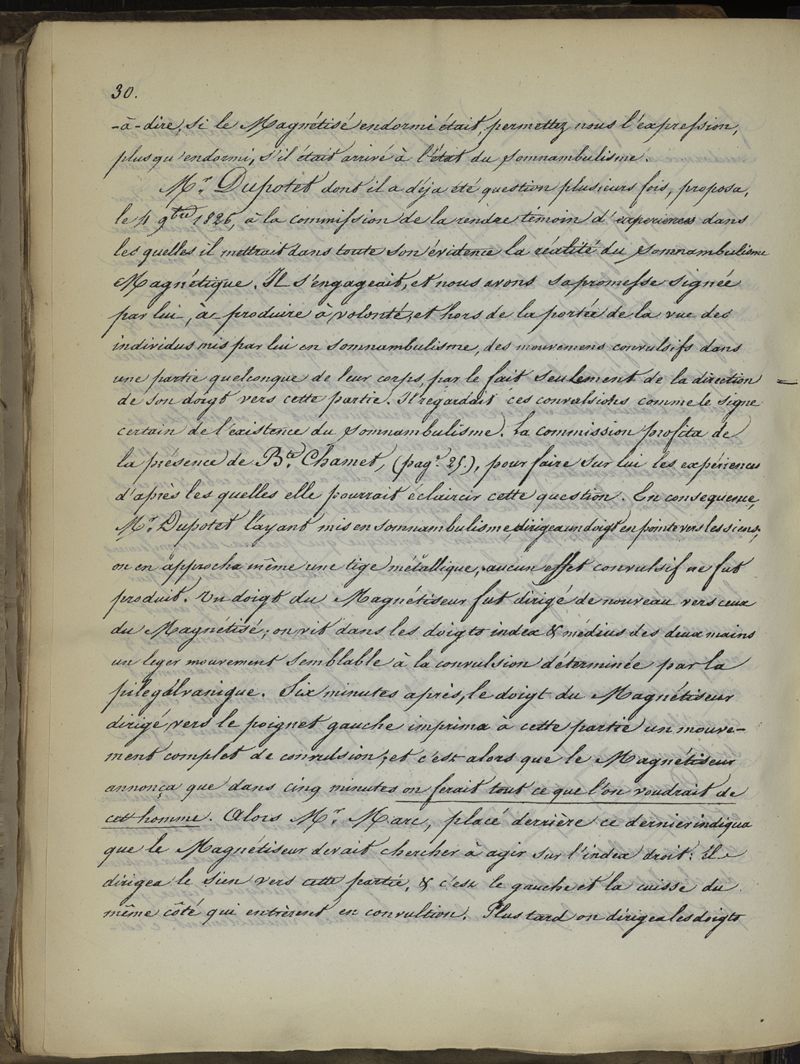 30.
-à-dire, si le Magnétisé endormi était, permettez nous l'expression,
plus qu'endormi, s'il était arrivé à l'état du somnambulisme.
Mr. Dupotet dont il a déja été question plusieurs fois, proposa,
le 4 9bre 1826, à la commission de la rendre témoin d'expériences dans
les quelles il mettrait dans toute son évidence la réalité du somnambulisme
Magnétique. Il s'engageait, et nous avons sa promesse signée
par lui, à produire à volonté, et hors de la portée de la vue des
individus mis par lui en somnambulisme, des mouvemens convulsifs dans
une partie quelconque de leur corps, par le fait seulement de la direction
de son doigt vers cette partie. Il regardait ces convulsions comme le signe
certain de l'existence du somnambulisme. La commission profita de
la présence de Bte. Chamet, (pag. 25.), pour faire sur lui les expériences
d'après les quelles elle pourrait éclaircir cette question. En consequence,
Mr. Dupotet l'ayant mis en somnambulisme, dirigea un doigt en pointe vers les siens,
on en approcha même une tige métallique, aucun effet convulsif ne fut
produit. Un doigt du Magnétiseur fut dirigé de nouveau vers ceux
du Magnétisé; on vit dans les doigts index & médius des deux mains
un leger mouvement semblable à la convulsion déterminée par la
pile galvanique. Six minutes après, le doigt du Magnétiseur
dirigé vers le poignet gauche imprima à cette partie un mouve-
ment complet de convulsion, et c'est alors que le Magnétiseur
annonça que dans cinq minutes on ferait tout ce que l'on voudrait de
cet homme. Alors Mr. Marc, placé derrière ce dernier indiqua
que le Magnétiseur devait chercher à agir sur l'index droit: Il
dirigea le sien vers cette partie, & c'est le gauche et la cuisse du
même côté qui entrèrent en convultion. Plus tard on dirigea les doigts